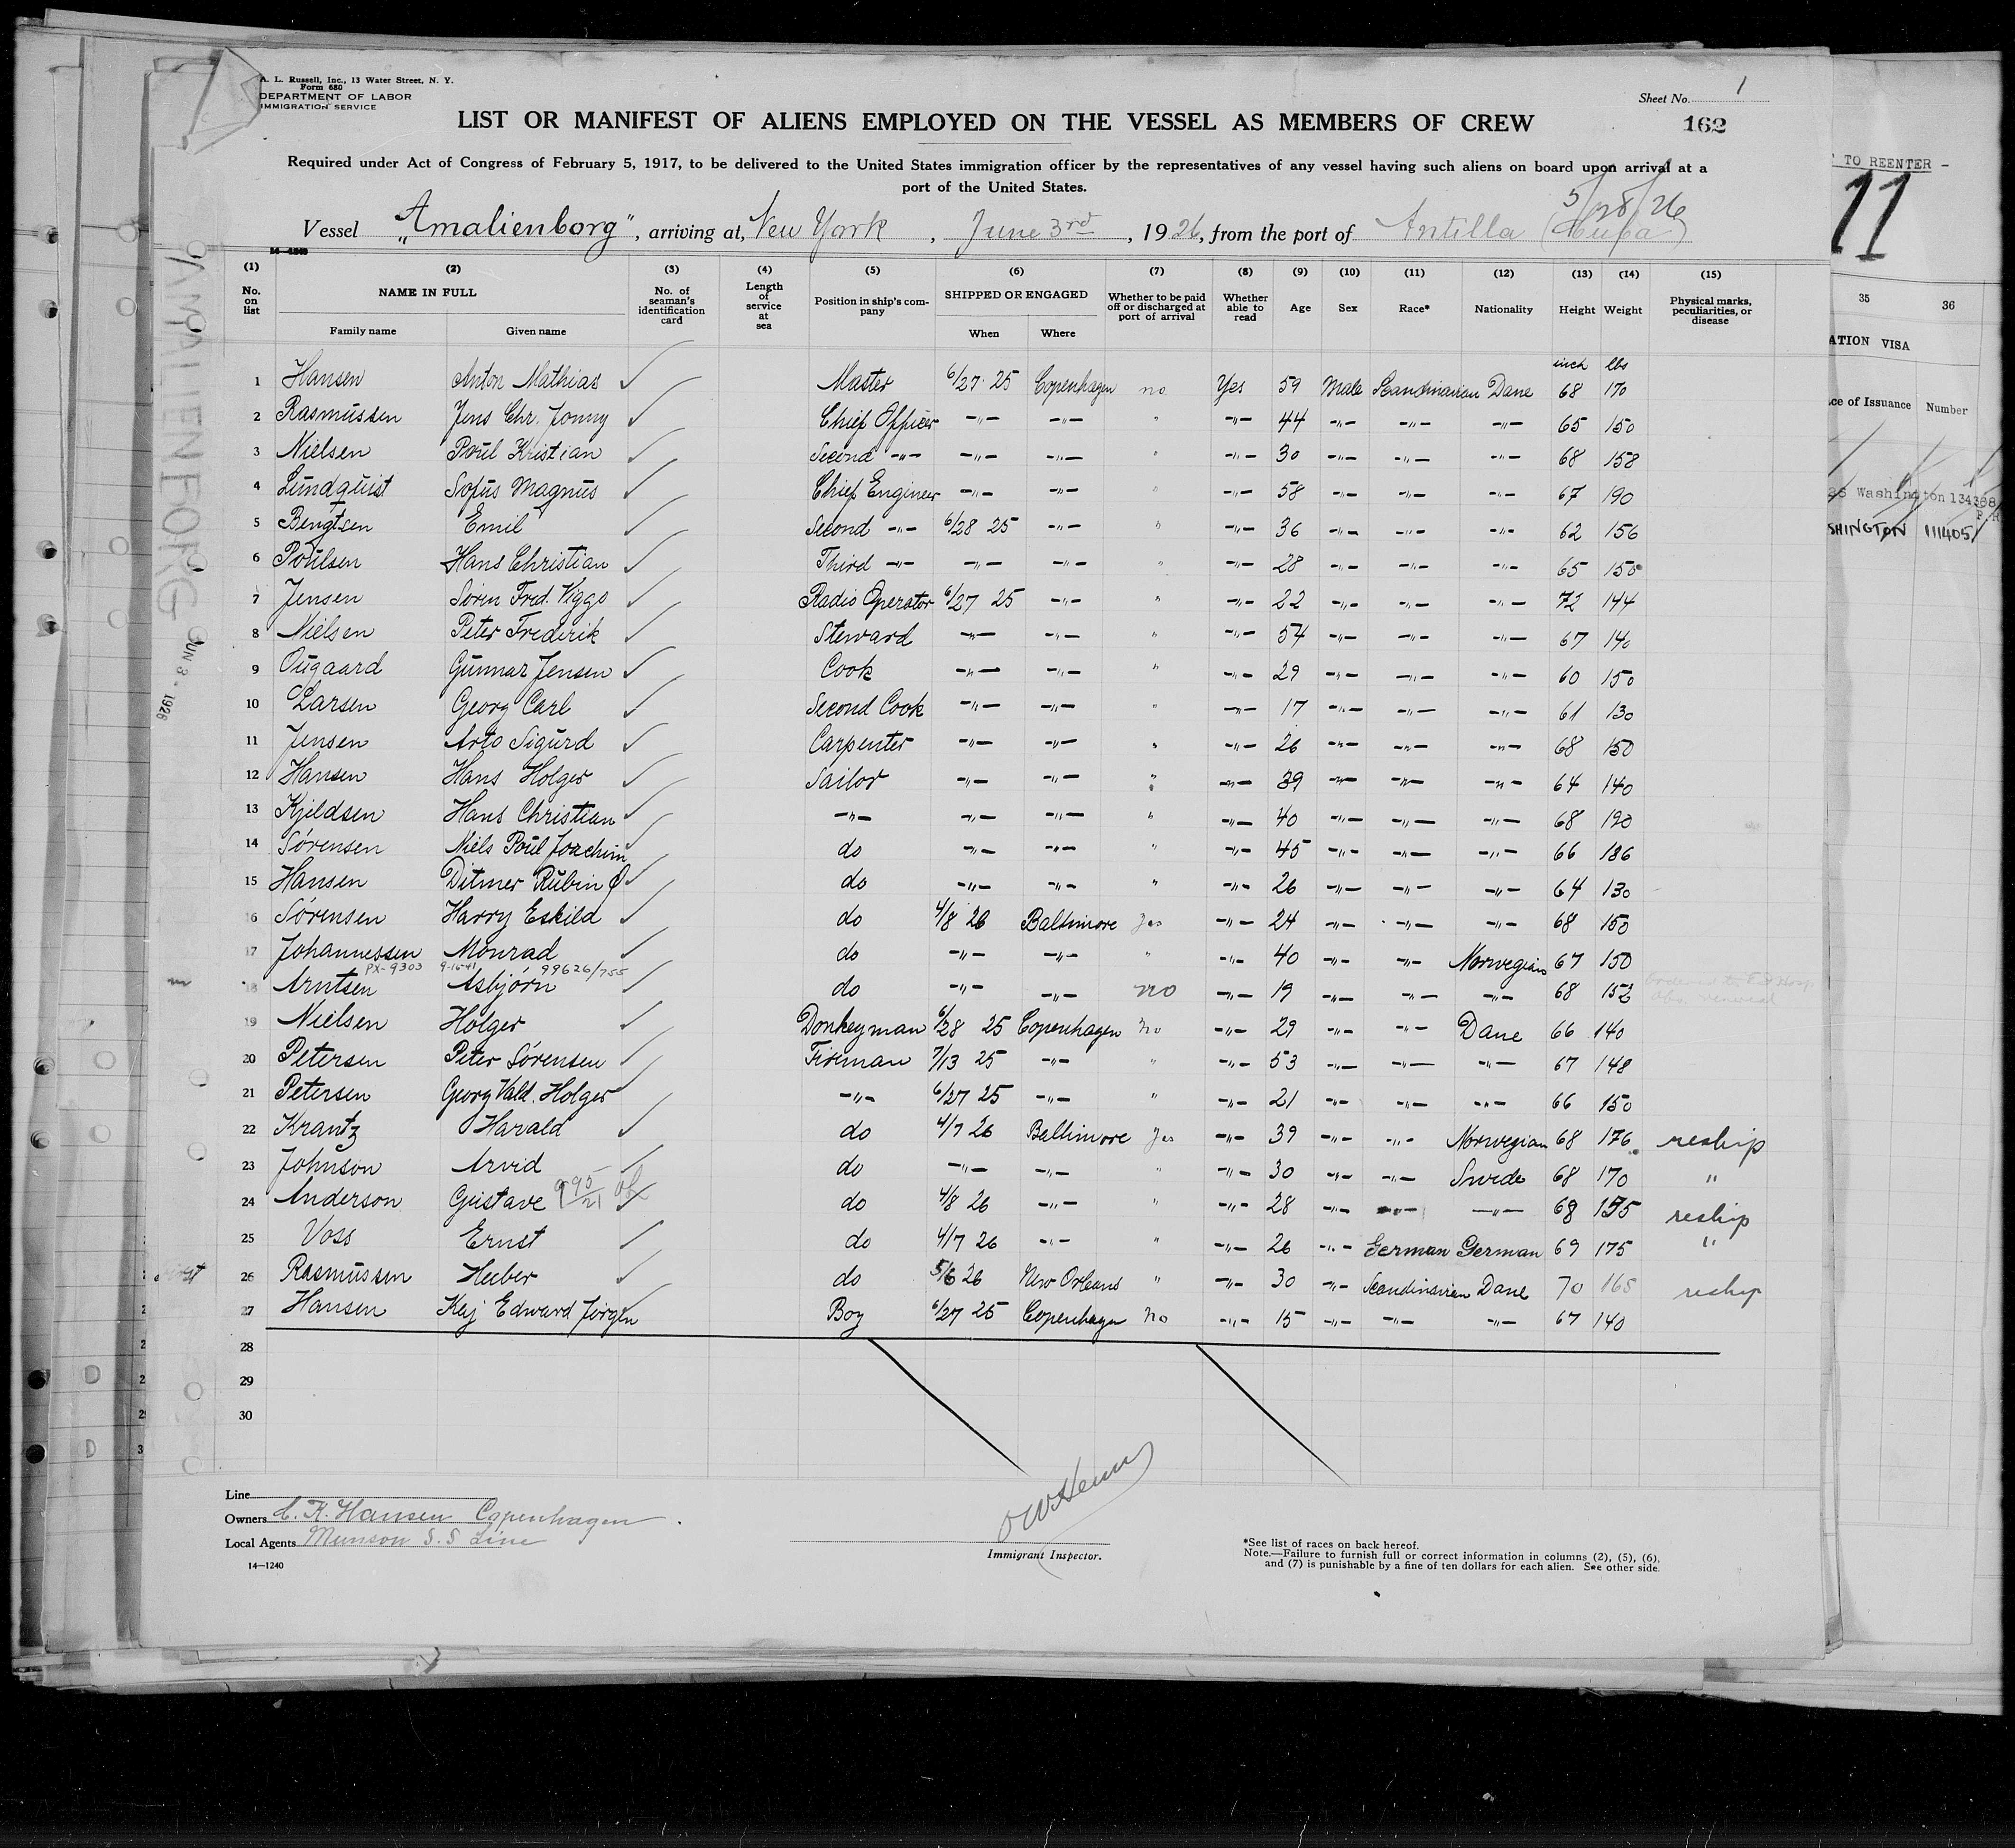 A. L. Russell, Inc., 13 Water Street, N. Y.
Form 680
DEPARTMENT OF LABOR
IMMIGRATION SERVICE
Sheet No. 1
LIST OR MANIFEST OF ALIENS EMPLOYED ON THE VESSEL AS MEMBERS OF CREW
162
Required under Act of Congress of February 5, 1917, to be delivered to the United States immigration officer by the representatives of any vessel having such aliens on board upon arrival at a
port of the United States.
5/28/26
Vessel „Amalienborg", arriving at, New York, June 3rd, 1926, from the port of Antilla (Cuba)
14—1240
(1) (2) (3) (4) (5) (6) (7) (8) (9) (10) (11) (12) (13) (14) (15)
No. on list NAME IN FULL Family name Given name No. of seaman's identification card Length of service at sea Position in ship's company SHIPPED OR ENGAGED When Where Whether to be paid off or discharged at port of arrival Whether able to read Age Sex Race* Nationality Height Weight Physical marks, peculiarities, or disease
inch lbs
1 Hansen Anton Mathias ✓ Master 6/27 25 Copenhagen no Yes 59 Male Scandinavian Dane 68 170
2 Rasmussen Jens Chr. Jonny ✓ Chief Officer -"- -"- " -"- 44 -"- -"- -"- 65 150
3 Nielsen Poul Kristian ✓ Second -"- -"- -"- " -"- 30 -"- -"- -"- 68 158
4 Lundquist Sofus Magnus ✓ Chief Engineer -"- -"- " -"- 58 -"- -"- -"- 67 190
5 Bengtsen Emil ✓ Second -"- 6/28 25 -"- " -"- 36 -"- -"- -"- 62 156
6 Poulsen Hans Christian ✓ Third -"- -"- -"- " -"- 28 -"- -"- -"- 65 150
7 Jensen Sören Fred. Viggo ✓ Radio Operator 6/27 25 -"- " -"- 22 -"- -"- -"- 72 144
8 Nielsen Peter Frederik ✓ Steward -"- -"- " -"- 54 -"- -"- -"- 67 140
9 Ougaard Gunnar Jensen ✓ Cook -"- -"- " -"- 29 -"- -"- -"- 60 150
10 Larsen Georg Carl ✓ Second Cook -"- -"- " -"- 17 -"- -"- -"- 61 130
11 Jensen Arto Sigurd ✓ Carpenter -"- -"- " -"- 26 -"- -"- -"- 68 150
12 Hansen Hans Holger ✓ Sailor -"- -"- " -"- 39 -"- -"- -"- 64 140
13 Kjeldsen Hans Christian ✓ -"- -"- -"- " -"- 40 -"- -"- -"- 68 190
14 Sørensen Niels Poul Joachim ✓ do -"- -"- " -"- 45 -"- -"- -"- 66 186
15 Hansen Ditmer Rubin Ø ✓ do -"- -"- " -"- 26 -"- -"- -"- 64 130
16 Sørensen Harry Eskild ✓ do 4/8 26 Baltimore Yes -"- 24 -"- -"- -"- 68 150
17 Johannessen Monrad ✓ do -"- -"- " -"- 40 -"- -"- Norwegian 67 150
PX-9303 9-16-41 99626/755
18 Arntsen Asbjørn ✓ do -"- -"- no -"- 19 -"- -"- -"- 68 152
19 Nielsen Holger ✓ Donkeyman 6/28 25 Copenhagen no -"- 29 -"- -"- Dane 66 140
20 Petersen Peter Sørensen ✓ Fireman 7/13 25 -"- " -"- 53 -"- -"- -"- 67 148
21 Petersen Georg Vald. Holger ✓ -"- 6/27 25 -"- " -"- 21 -"- -"- -"- 66 150
22 Krantz Harald ✓ do 4/7 26 Baltimore Yes -"- 39 -"- -"- Norwegian 68 176 reship
23 Johnson Arvid ✓ do -"- -"- " -"- 30 -"- -"- Swede 68 170 "
24 Anderson Gustave ✓ do 4/8 26 -"- " -"- 28 -"- -"- -"- 68 155 reship
25 Voss Ernst ✓ do 4/7 26 -"- " -"- 26 -"- German German 69 175 "
26 Rasmussen Huber ✓ do 5/6 26 New Orleans " -"- 30 -"- Scandinavian Dane 70 168 reship
27 Hansen Kaj Edward Jörgen ✓ Boy 6/27 25 Copenhagen no -"- 15 -"- -"- -"- 67 140
28
29
30
Line
Owners C. K. Hansen Copenhagen.
Local Agents Munson S.S Line
14—1240
Immigrant Inspector.
*See list of races on back hereof.
Note.—Failure to furnish full or correct information in columns (2), (5), (6),
and (7) is punishable by a fine of ten dollars for each alien. See other side.
AMALIENBORG
JUN 3 - 1926
TO REENTER -
11
35 36
ATION VISA
ce of Issuance Number
26 Washington 134368
P.R
SHINGTON 111405